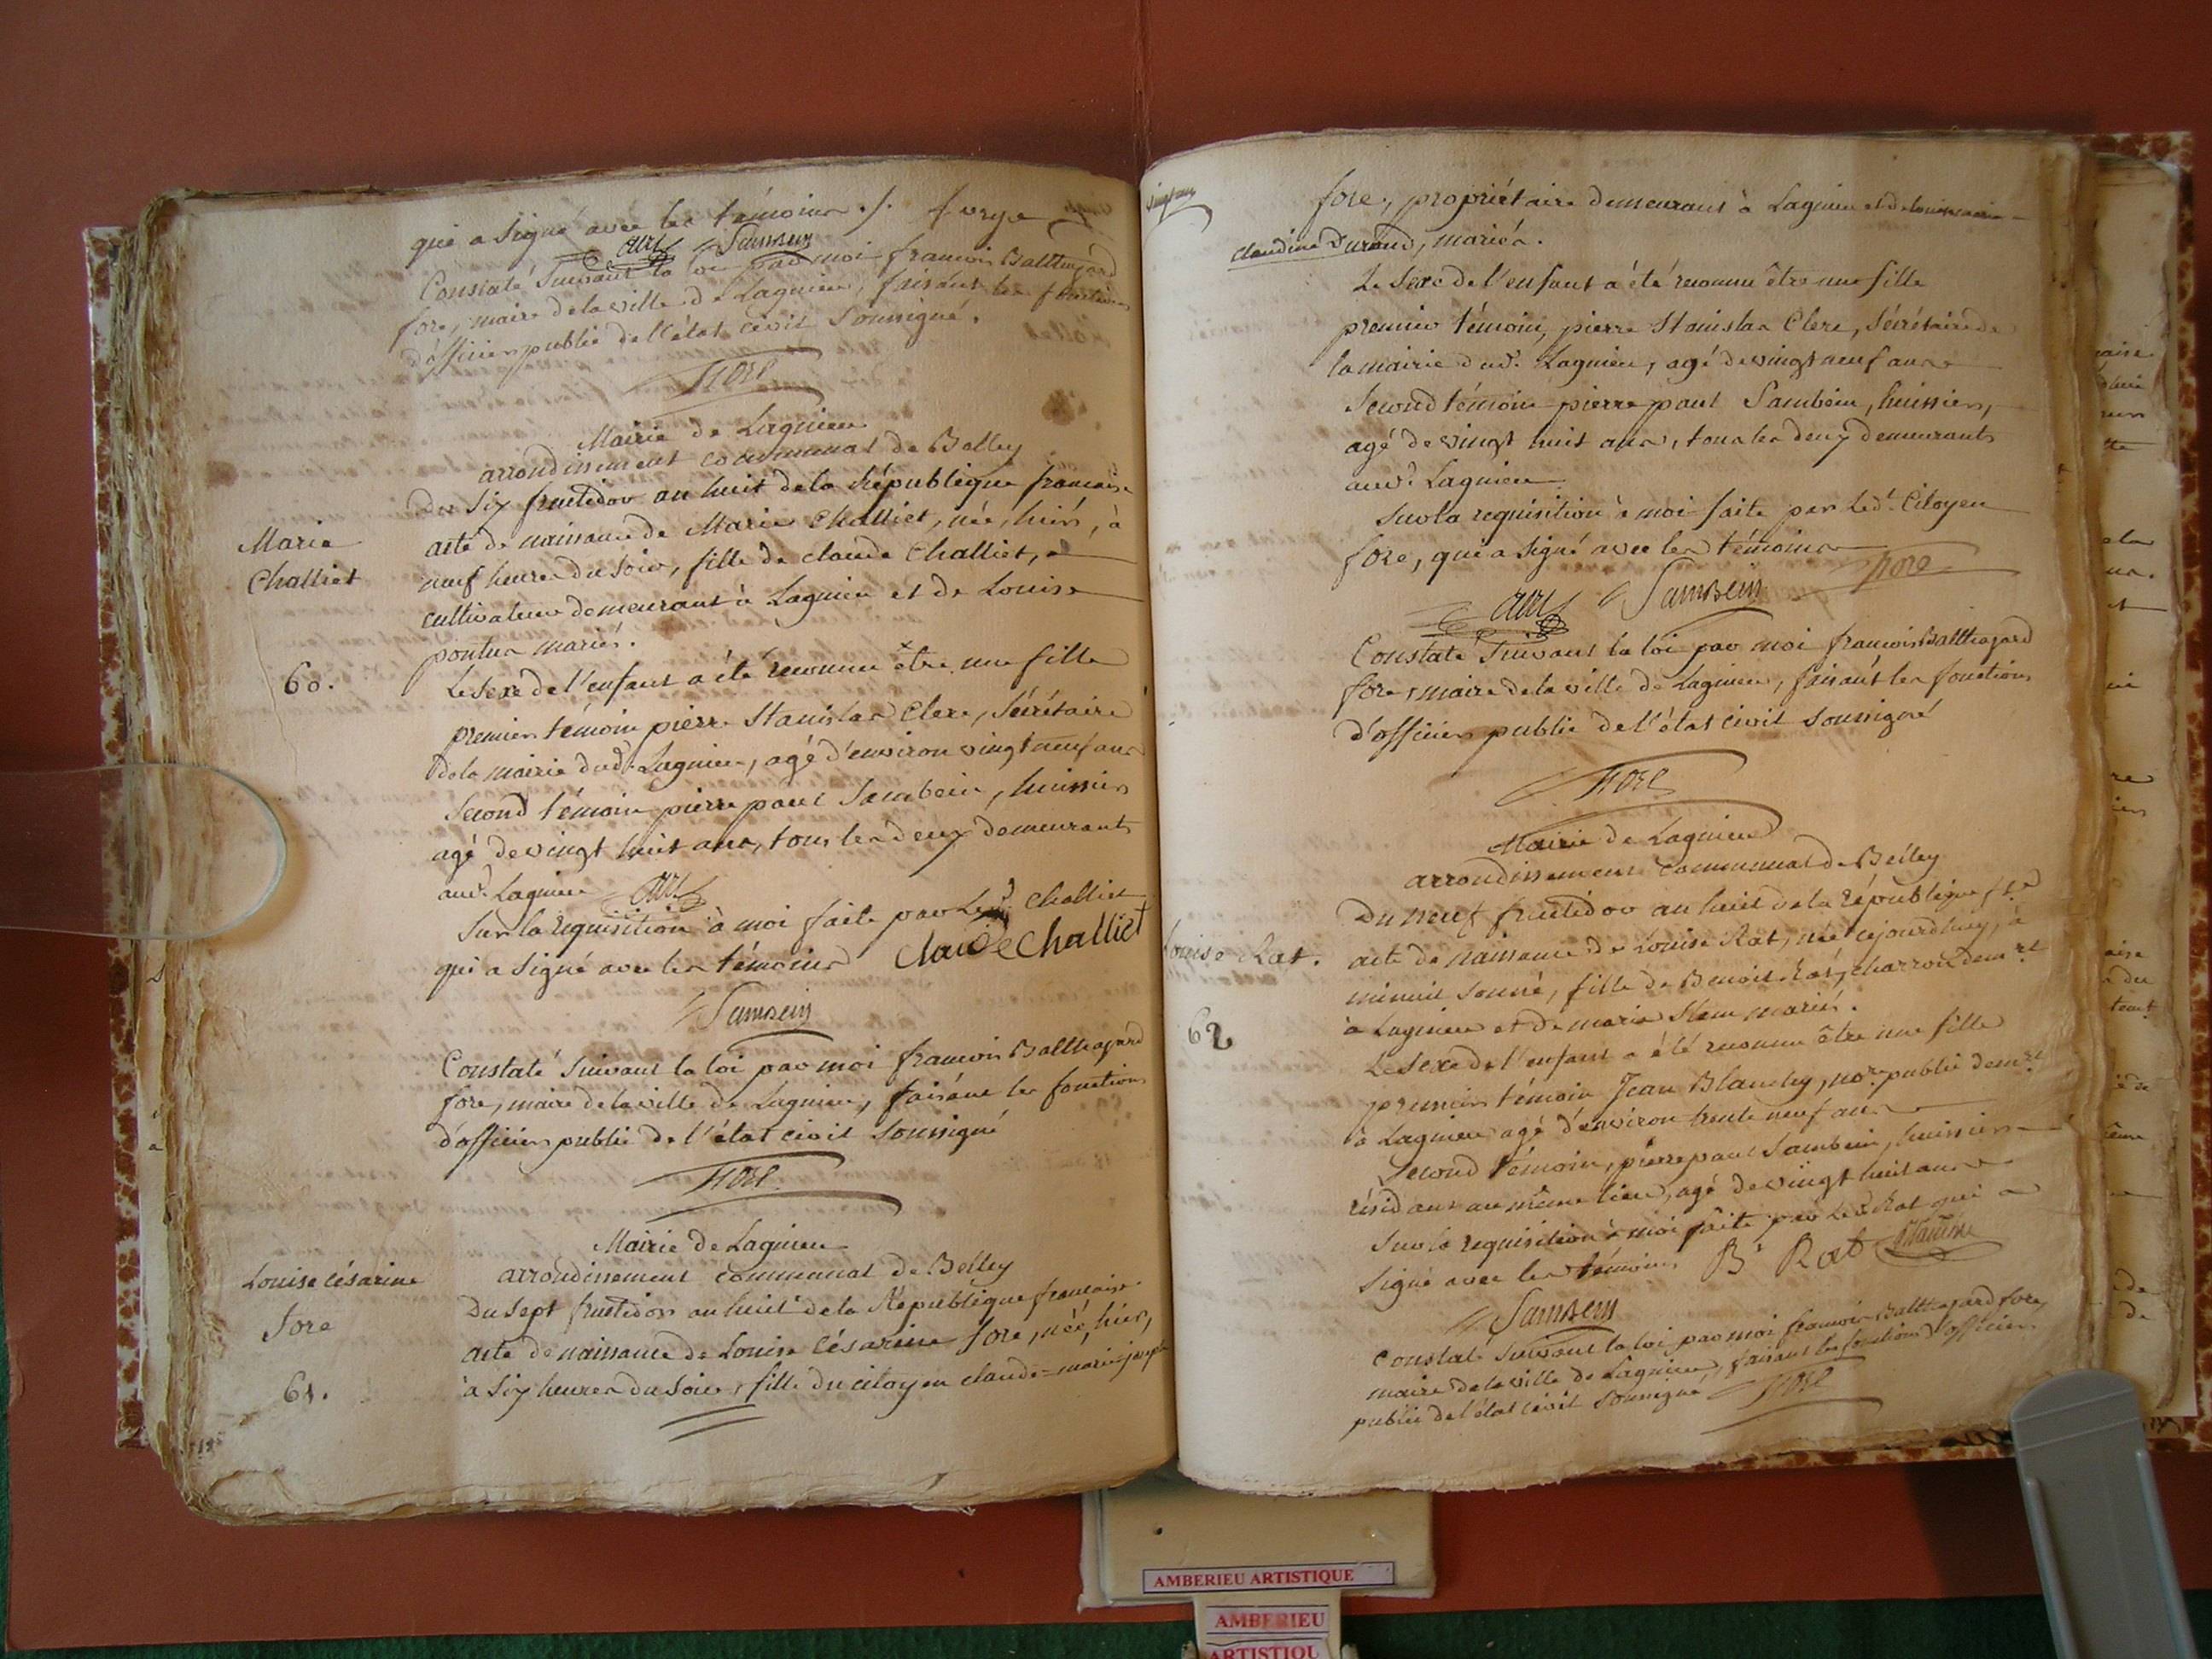 qui a signé avec les témoins ./.
Clerc Sambein
Constaté suivant la loi par moi francois Balthazard
fore, maire de la ville de Lagnieu, faisant les fonctions
d'officier public de l'état civil soussigné.
fore
Mairie de Lagnieu
arrondissement communal de Belley
du six fructidor an huit de la République francaise
Marie
Challiet
60.
acte de naissance de Marie Challiet, née, hier, à
neuf heures du soir, fille de claude Challiet,
cultivateur demeurant à Lagnieu et de Louise
pontus mariés.
Le sexe de l'enfant a été reconnu être une fille
premier témoin pierre Stanislas Clerc, sécrétaire
de la mairie dud. Lagnieu, agé d'environ vingt neuf ans
second témoin pierre paul Sambein, huissier
agé de vingt huit ans, tous les deux demeurants
aud. Lagnieu Clerc
Sur la requisition à moi faite par Led. Challiet
qui a signé avec les témoins Claude Challiet
Sambein
Constaté suivant la loi par moi francois Balthazard
fore, maire de la ville de Lagnieu, faisant les fonctions
d'officier public de l'état civil soussigné
fore
Mairie de Lagnieu
arrondissement communal de Belley
Louise césarine
fore
61.
Du sept fructidor an huit de la République francaise
acte de naissance de Louise césarine fore, née, hier,
à six heures du soir, fille du citoyen claude-marie-joseph
fore, propriétaire demeurant à Lagnieu et de
claudine Durand, mariés.
Le sexe de l'enfant a été reconnu être une fille
premier témoin, pierre Stanislas Clerc, sécrétaire de
la mairie dud. Lagnieu, agé de vingt neuf ans
second témoin pierre paul Sambein, huissier,
agé de vingt huit ans, tous les deux demeurants
aud. Lagnieu
Sur la requisition à moi faite par Led. Citoyen
fore, qui a signé avec les témoins
fore
Clerc Sambein
Constaté suivant la loi par moi francois Balthazard
fore, maire de la ville de Lagnieu, faisant les fonctions
d'officier public de l'état civil soussigné
fore
Mairie de Lagnieu
arrondissement communal de Belley
Louise Rat.
62
Du neuf fructidor an huit de la République
acte de naissance de Louise Rat, née cejourdhuy, à
minuit sonné, fille de Benoit Rat, charron demt
à Lagnieu et de marie mariés.
Le sexe de l'enfant a été reconnu être une fille
premier témoin Jean Blanchy, nore public demt
à Lagnieu agé d'environ trente neuf ans
Second témoin, pierre paul Sambein, huissier
résidant au même lieu, agé de vingt huit ans
Sur la requisition à moi faite par Led. Rat qui a
signé avec les témoins B. Rat
Sambein
Constaté suivant la loi par moi francois Balthazard fore,
maire de la ville de Lagnieu, faisant les fonctions d'officier
public de l'état civil soussigné fore
AMBERIEU ARTISTIQUE
AMBERIEU
ARTISTIQU